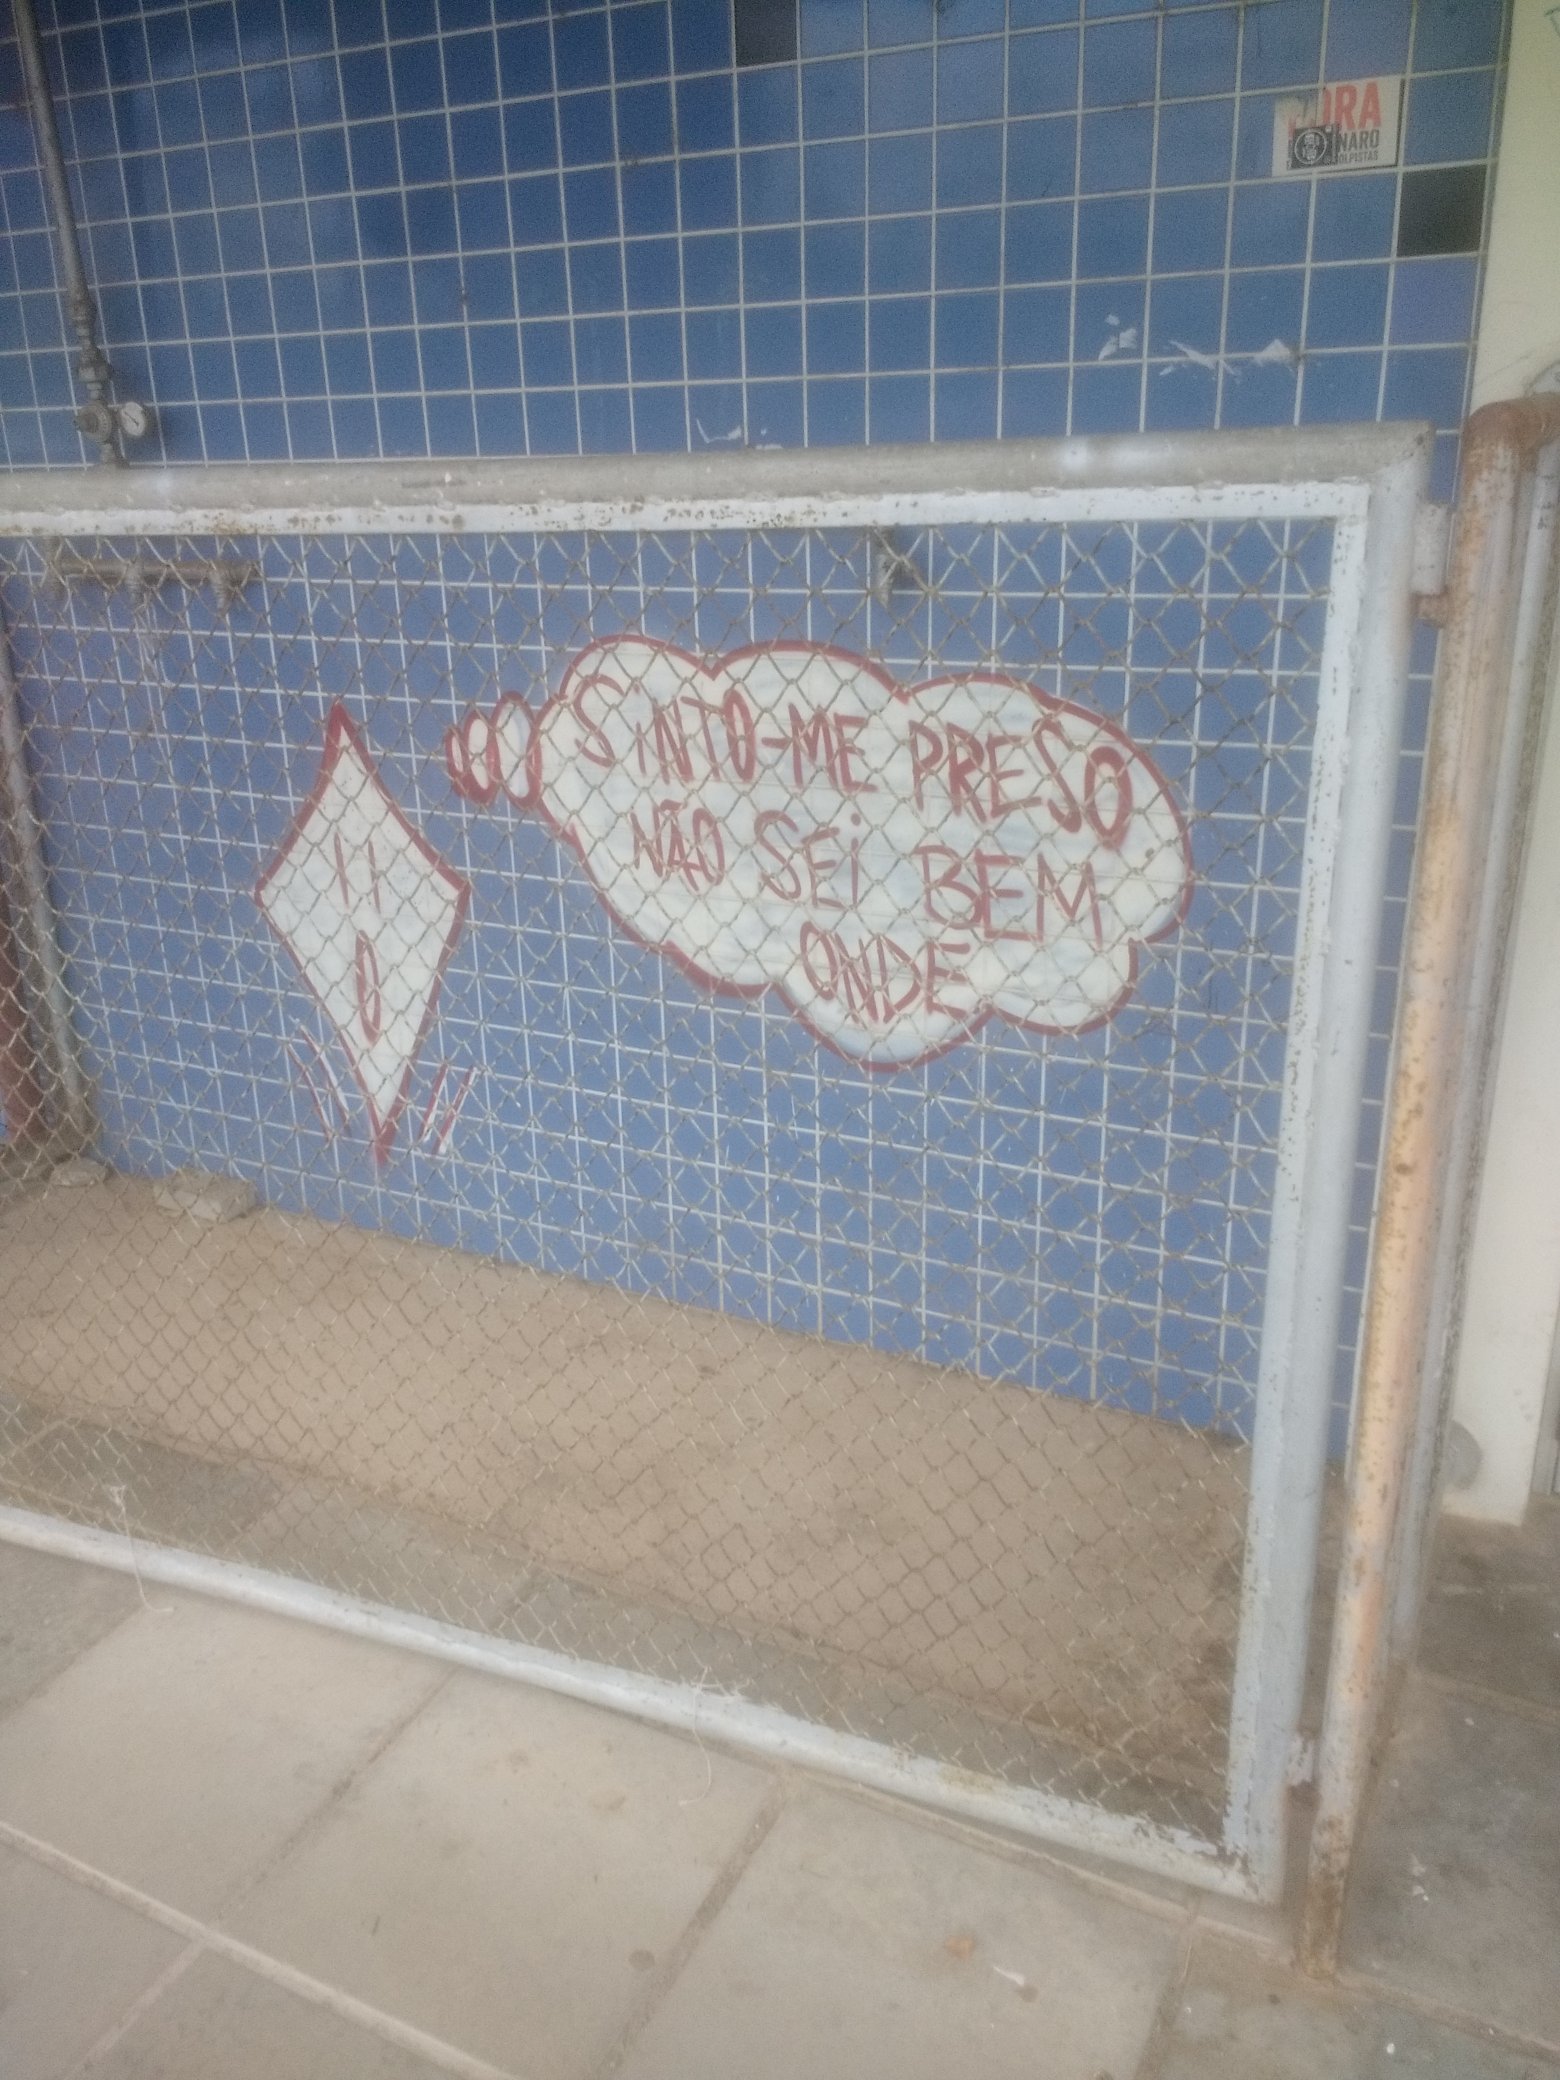 ORA
NARO
OLPISTAS
SiNTO-ME PRESO
NÃO SEi BEM
ONDE